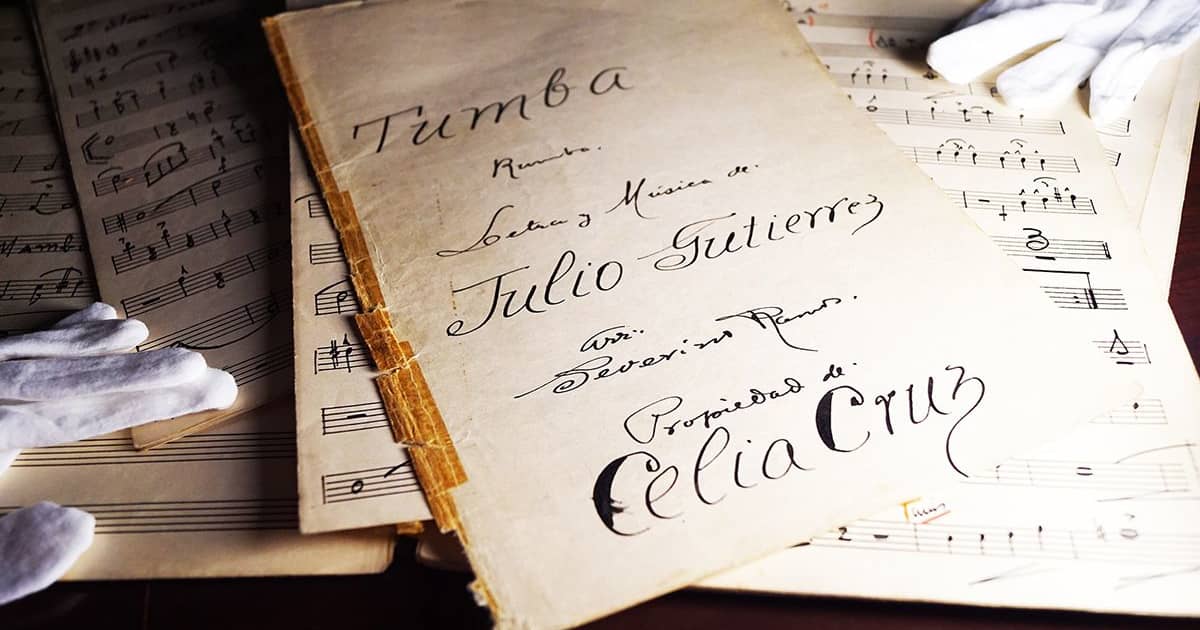 Tumba
Rumba.
Letra y Música de:
Julio Gutierrez
arr:
Severino Ramos.
Propiedad de:
Celia Cruz
Mambo
3
2